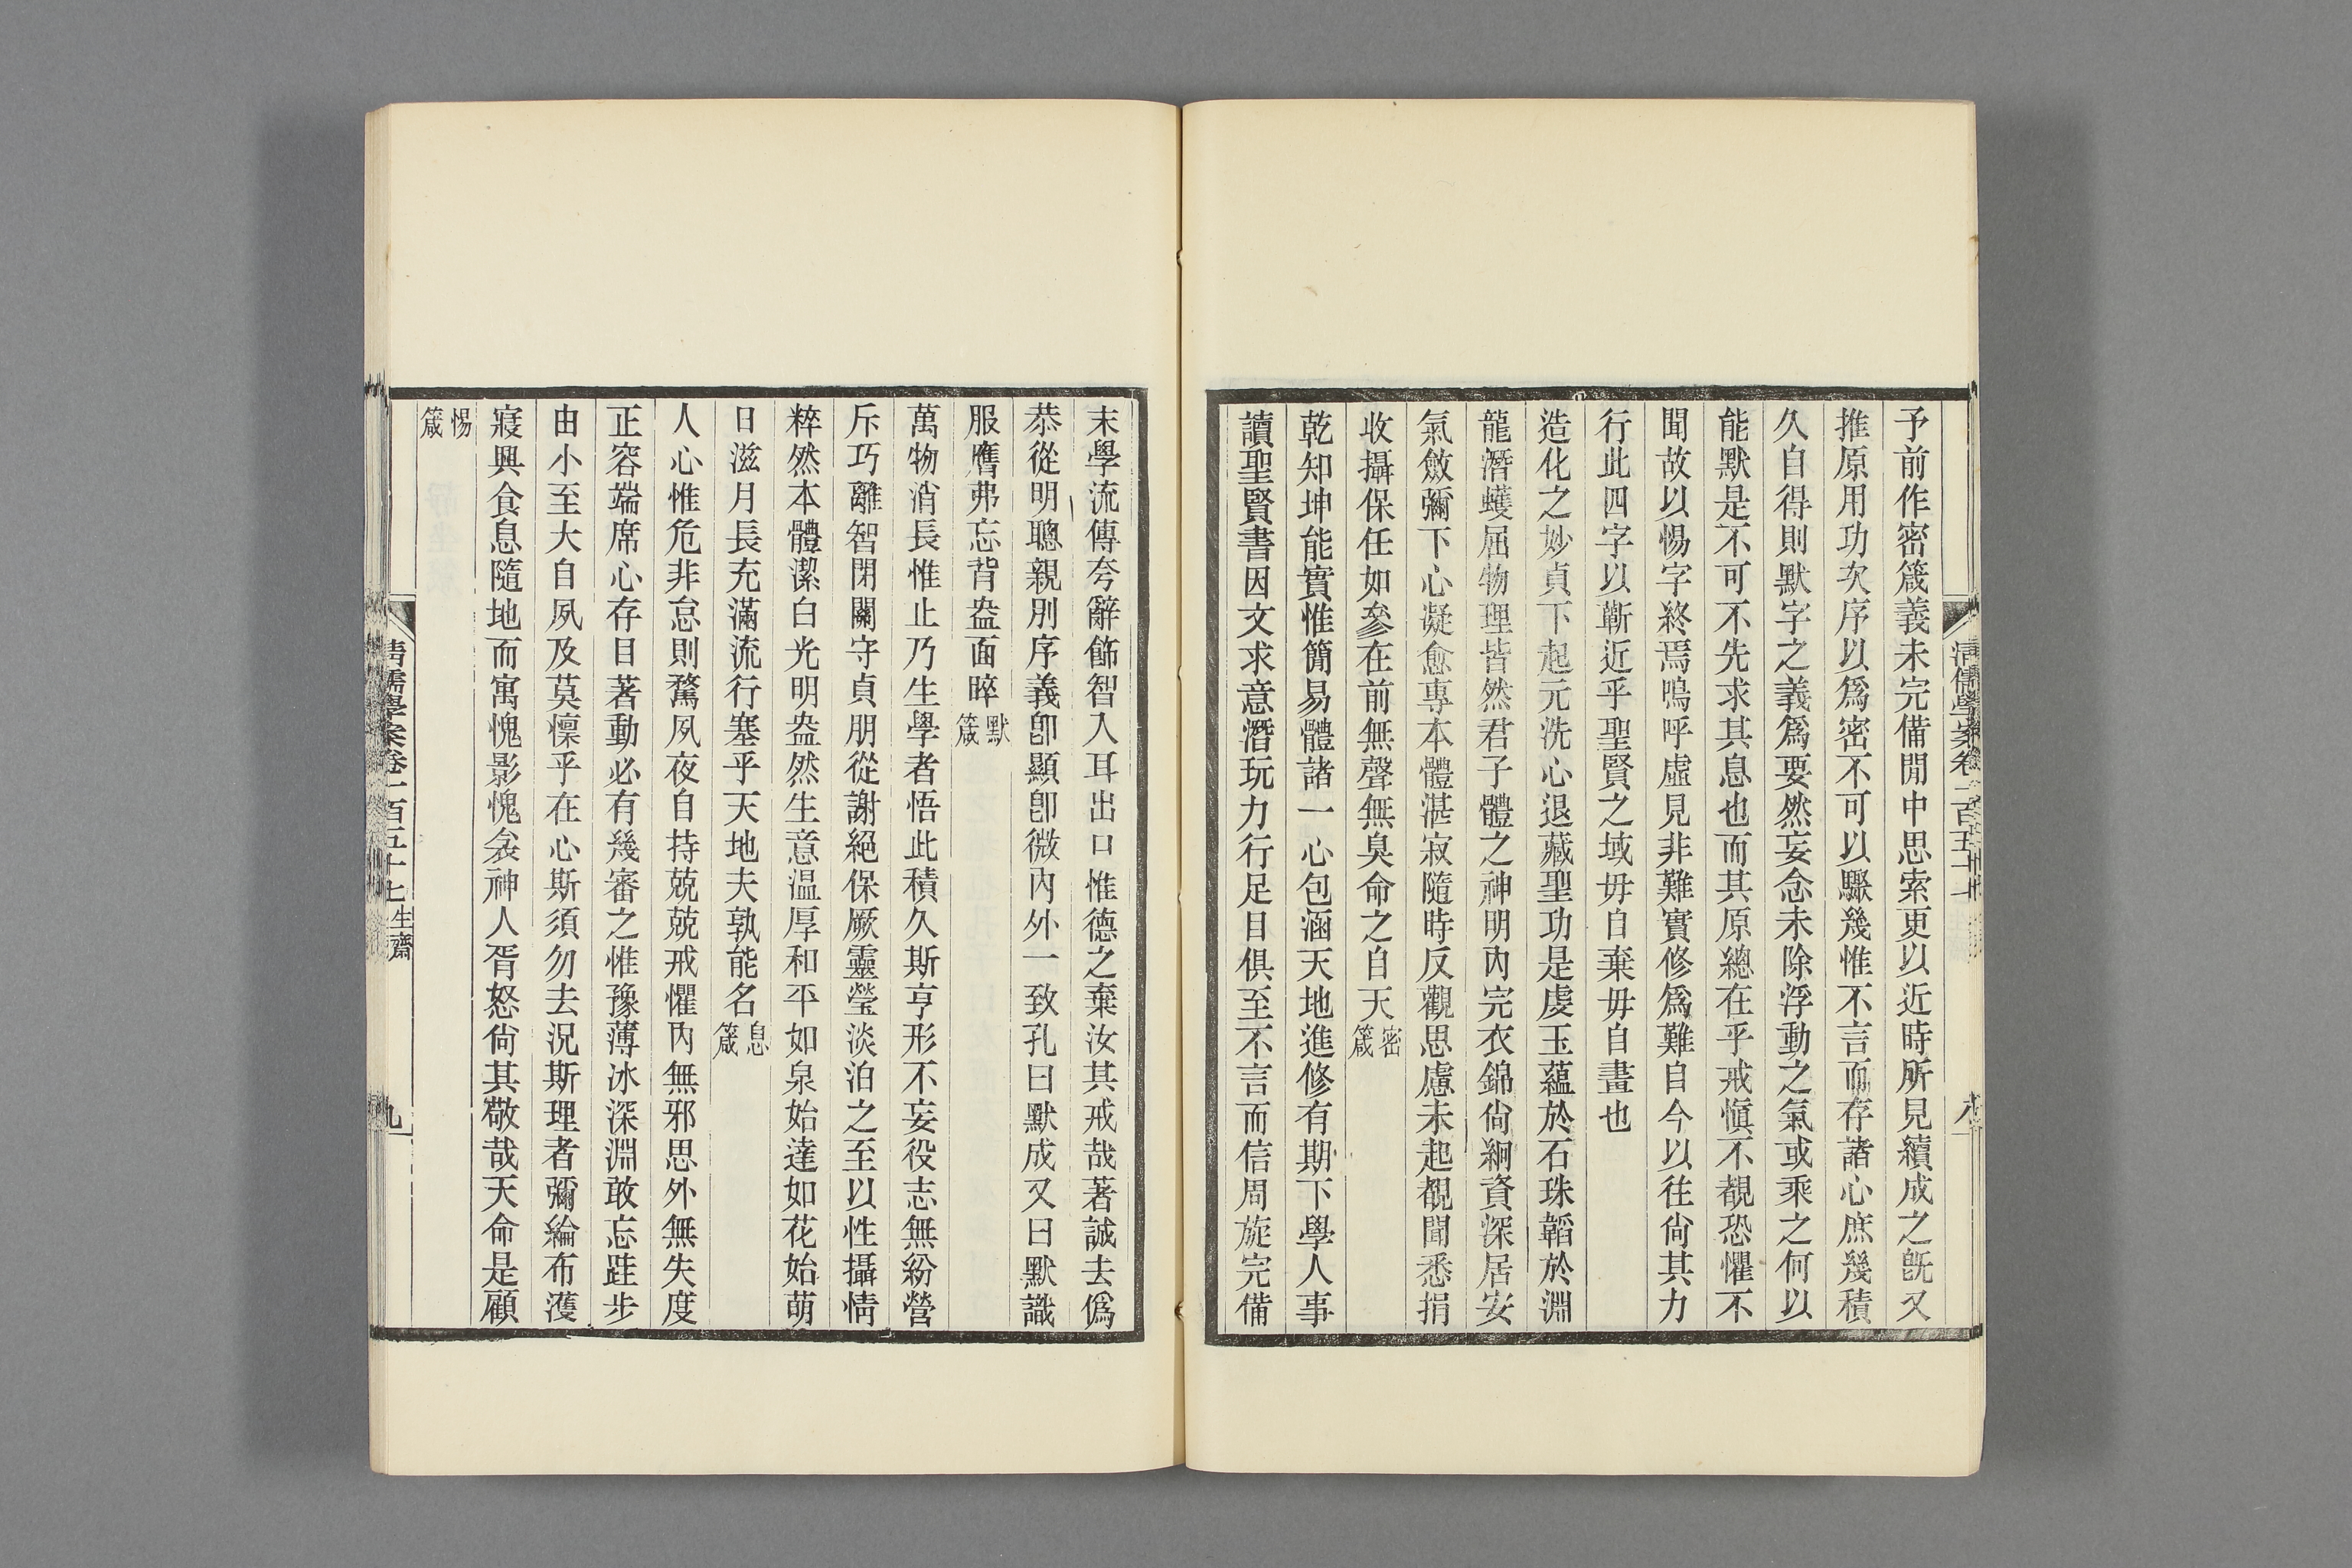 予前作密箴義未完備閒中思索更以近時所見續成之旣又
推原用功次序以爲密不可以驟幾惟不言而存諸心庶幾積
久自得則默字之義爲要然妄念未除浮動之氣或乘之何以
能默是不可不先求其息也而其原總在乎戒愼不覩恐懼不
聞故以惕字終焉嗚呼虛見非難實修爲難自今以往尙其力
行此四字以蘄近乎聖賢之域毋自棄毋自畫也
造化之妙貞下起元洗心退藏聖功是虔玉蘊於石珠韜於淵
龍潛蠖屈物理皆然君子體之神明內完衣錦尙絅資深居安
氣斂彌下心凝愈專本體湛寂隨時反觀思慮未起覩聞悉捐
收攝保任如參在前無聲無臭命之自天密箴
乾知坤能實惟簡易體諸一心包涵天地進修有期下學人事
讀聖賢書因文求意潛玩力行足目俱至不言而信周旋完備
末學流傳夸辭飾智入耳出口惟德之棄汝其戒哉著誠去僞
恭從明聰親別序義卽顯卽微內外一致孔曰默成又曰默識
服膺弗忘背盎面睟默箴
萬物消長惟止乃生學者悟此積久斯亨形不妄役志無紛營
斥巧離智閉關守貞朋從謝絕保厥靈瑩淡泊之至以性攝情
粹然本體潔白光明盎然生意温厚和平如泉始達如花始萌
日滋月長充滿流行塞乎天地夫孰能名息箴
人心惟危非怠則騖夙夜自持兢兢戒懼內無邪思外無失度
正容端席心存目著動必有幾審之惟豫薄冰深淵敢忘跬步
由小至大自夙及莫懍乎在心斯須勿去況斯理者彌綸布濩
寢興食息隨地而寓愧影愧衾神人胥怒尙其敬哉天命是顧
惕箴
清儒學案卷一百五十七生齋
九